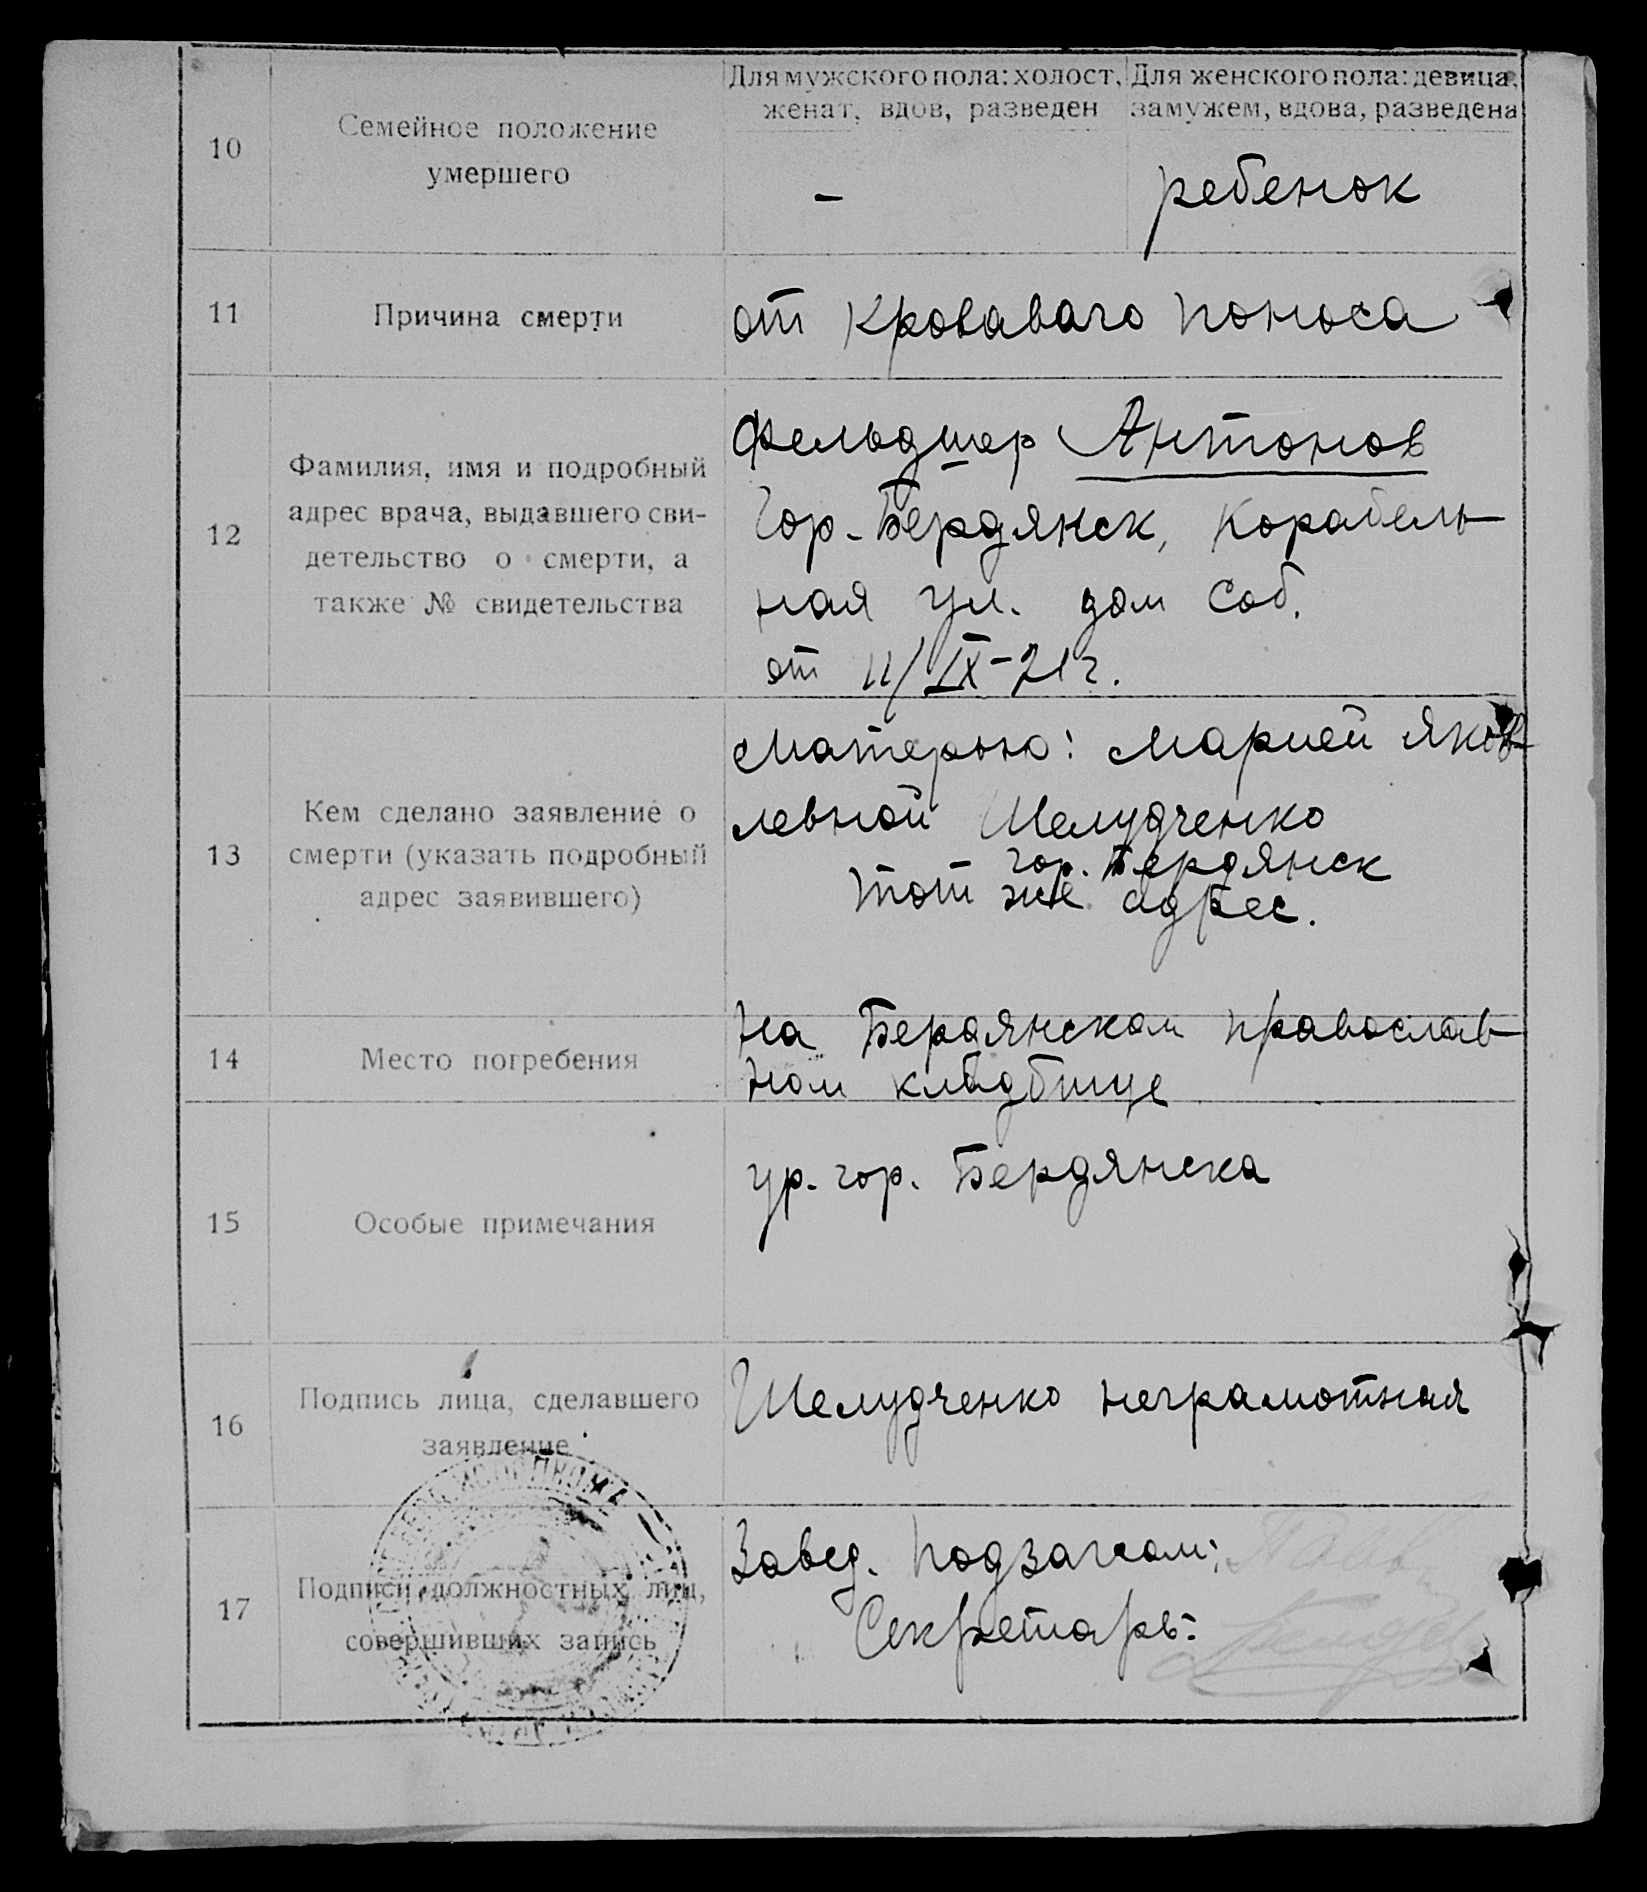 Для мужского пола: холост, женат, вдов, разведен
Для женского пола: девица, замужем, вдова, разведена
10
Семейное положение
умершего
–
ребенок
11
Причина смерти
от кроваваго поноса
12
Фамилия, имя и подробный
адрес врача, выдавшего сви-
детельство о смерти, а
также № свидетельства
Фельдшер Антонов
Гор. Бердянск, Корабель-
ная ул. дом соб.
от 11/IX-21 г.
13
Кем сделано заявление о
смерти (указать подробный
адрес заявившего)
Матерью: Марией Яков-
левной Шелудченко
гор. Бердянск
тот же адрес.
14
Место погребения
На Бердянском православ-
ном кладбище
15
Особые примечания
ур. гор. Бердянска
16
Подпись лица, сделавшего
заявление
Шелудченко неграмотная
17
Подписи должностных лиц,
совершивших запись
Завед. Подзагсом:
Секретарь: